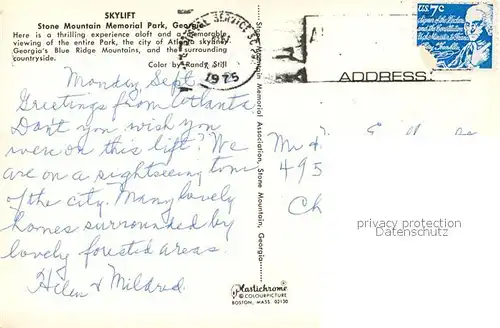 SKYLIFT
Stone Mountain Memorial Park, Georgia
Here is a thrilling experience aloft and a memorable
viewing of the entire Park, the city of Atlanta skyline,
Georgia's Blue Ridge Mountains, and the surrounding
countryside.
Color by Randy Still
Monday Sept
Greetings from Atlanta
Don't you wish you
were on this lift? We
are on a sightseeing tour
of the city. Many lovely
homes surrounded by
lovely forested areas.
Helen & Mildred.
POSTAL SERVICE
1975
Stone Mountain Memorial Association, Stone Mountain, Georgia
Plastichrome
® COLOURPICTURE
BOSTON, MASS 02130
ADDRESS:
U.S. 7c
Mr
495
Ch
privacy protection
Datenschutz